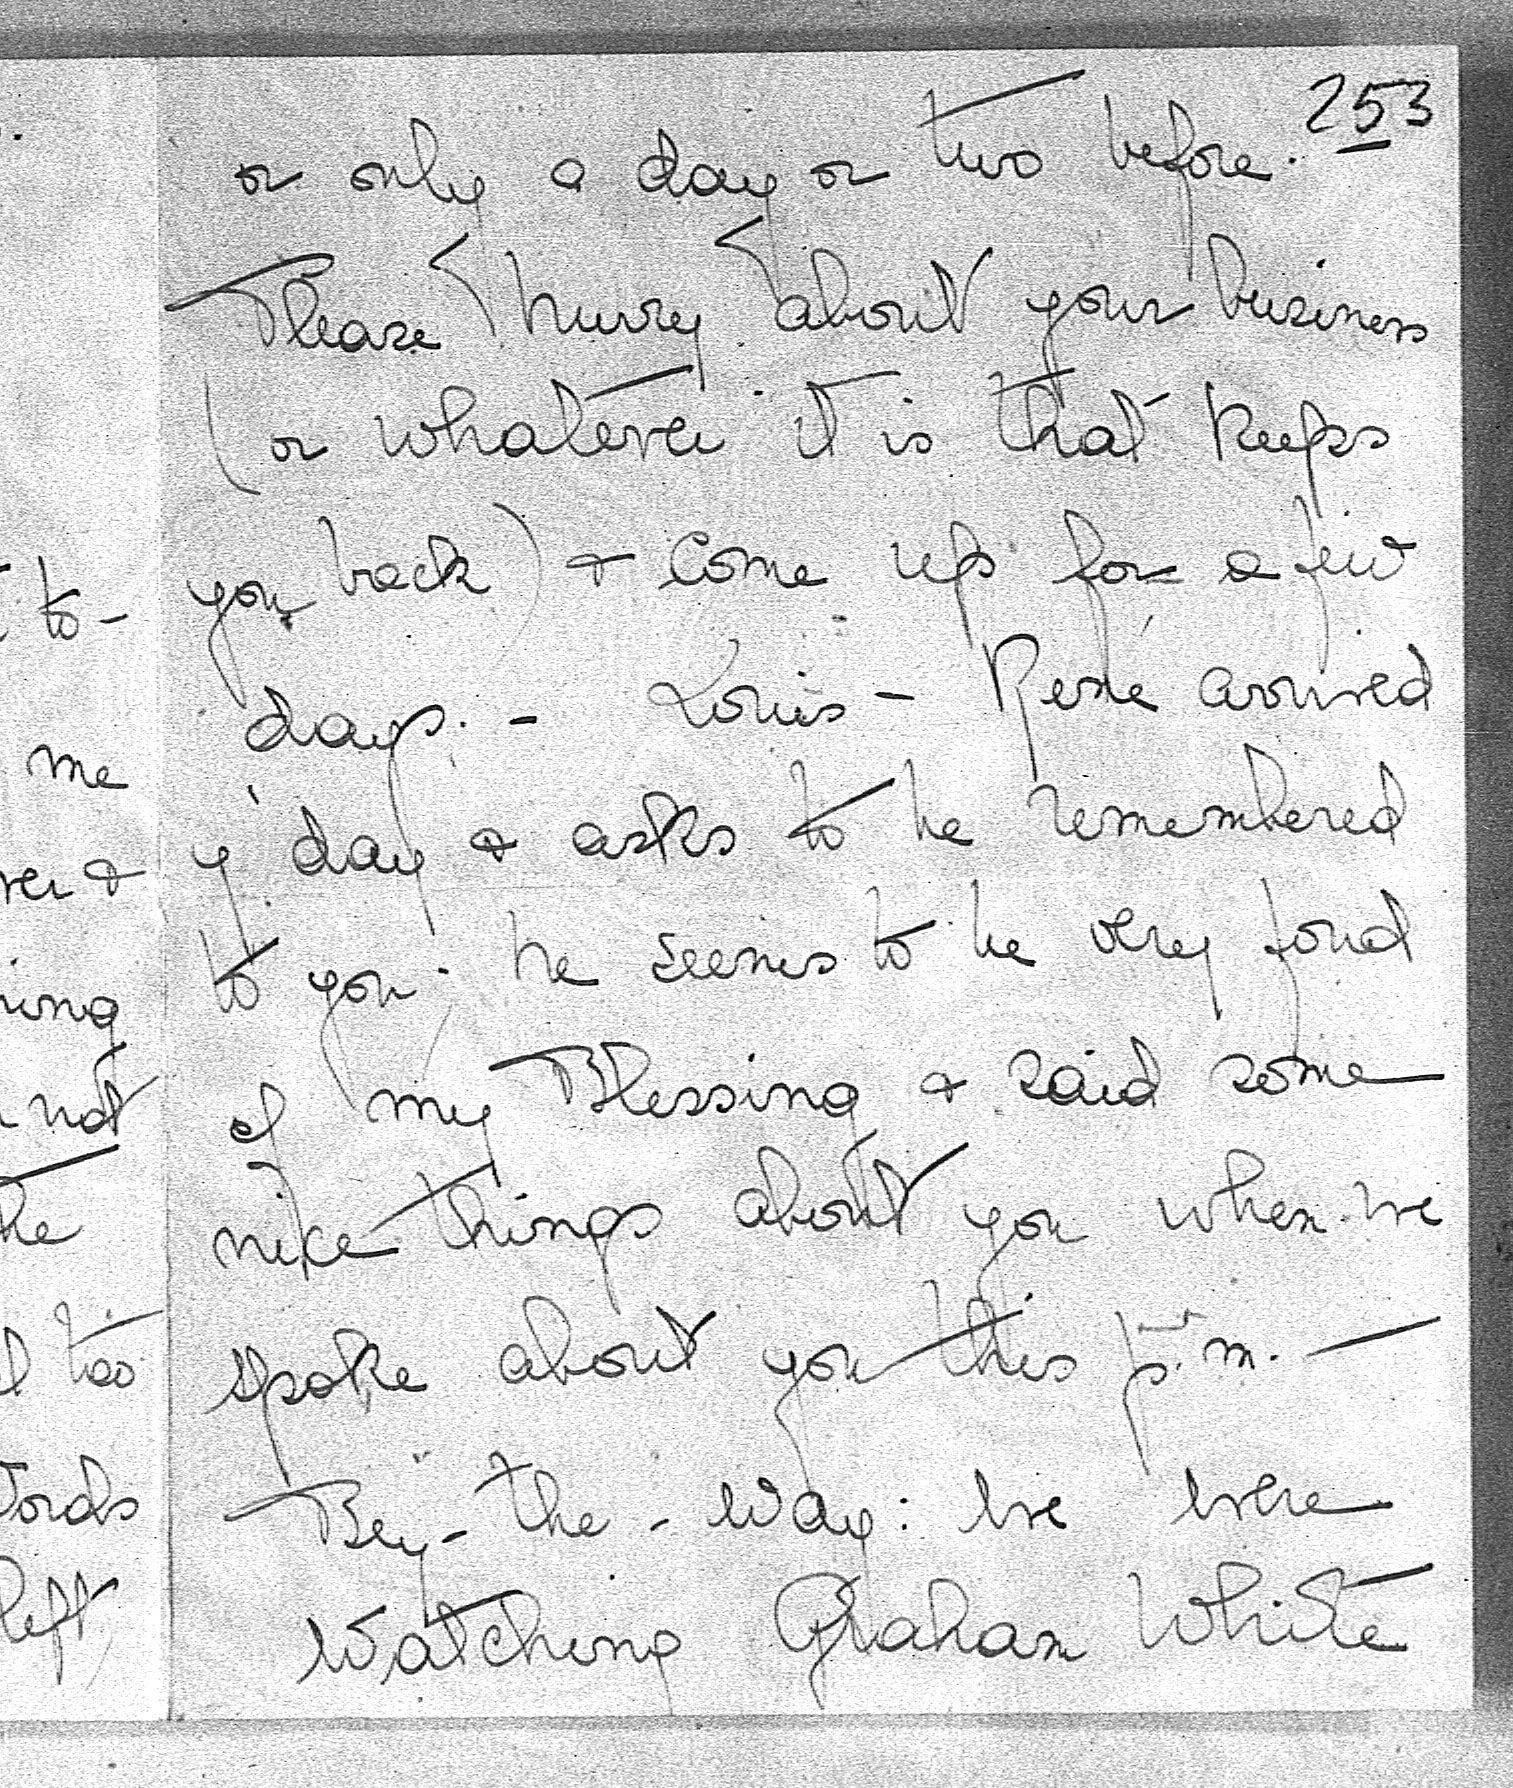 253
or only a day or two before.
Please hurry about your business
(or whatever it is that keeps
you back) & come up for a few
days. - Louis - René arrived
y'day & asks to be remembered
to you. he seems to be very fond
of my Blessing & said some
nice things about you when we
spoke about you this p.m. —
By - the - way: we were
watching Graham White
to -
me
&
not
the
too
words
left